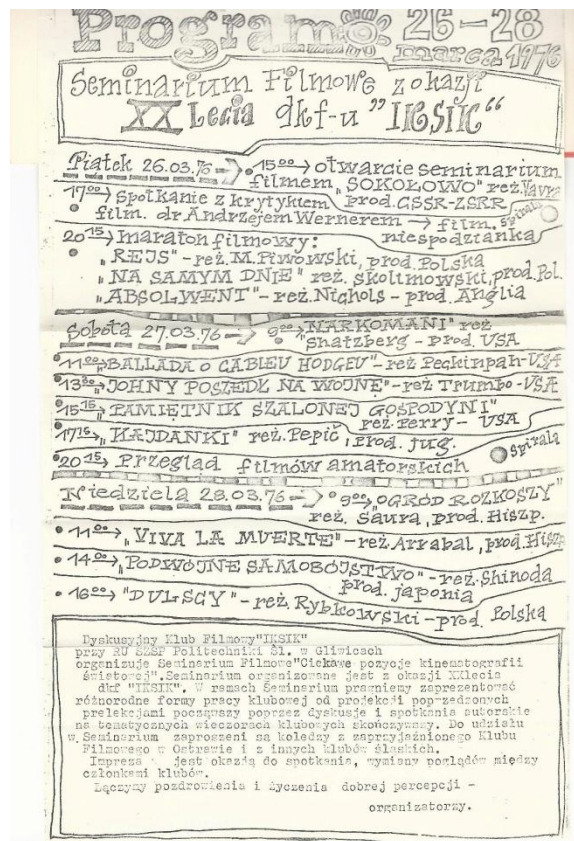 Program 26-28
marca 1976
Seminarium Filmowe z okazji
XX Lecia dkf-u "IKSIK"
Piątek 26.03.76 → 15⁰⁰ → otwarcie seminarium
filmem „SOKOŁOWO" reż. Vavra
prod. CSSR-ZSRR
17⁰⁰ → Spotkanie z krytykiem
film. dr Andrzejem Wernerem → film. spirala
niespodzianka
20¹⁵ → maraton filmowy:
„REJS" - reż. M. Piwowski, prod. Polska
„NA SAMYM DNIE" reż. Skolimowski, prod. Pol.
„ABSOLWENT" - reż. Nichols - prod. Anglia
Sobota 27.03.76 → 9⁰⁰ → „NARKOMANI" reż
Shatzberg - prod. USA
11⁰⁰ → „BALLADA O CABLEU HODGEU" - reż Peckinpah - USA
13³⁰ → „JOHNY POSZEDŁ NA WOJNĘ" - reż Trumbo - USA
15¹⁵ → „PAMIĘTNIK SZALONEJ GOSPODYNI"
reż. Perry - USA
17¹⁵ → „KAJDANKI" reż. Pepič, prod. jug.
20¹⁵ → Przegląd filmów amatorskich spirala
Niedziela 28.03.76 → 9⁰⁰ → „OGRÓD ROZKOSZY"
reż. Saura, prod. Hiszp.
11⁰⁰ → „VIVA LA MUERTE" - reż Arrabal, prod. Hiszp
14⁰⁰ → „PODWÓJNE SAMOBÓJSTWO" - reż. Shinoda
prod. japonia
16⁰⁰ → "DULSCY" - reż. Rybkowski - prod. Polska
Dyskusyjny Klub Filmowy "IKSIK"
przy RU SZSP Politechniki Śl. w Gliwicach
organizuje Seminarium Filmowe "Ciekawe pozycje kinematografii
światowej". Seminarium organizowane jest z okazji XXlecia
dkf "IKSIK". W ramach Seminarium pragniemy zaprezentować
różnorodne formy pracy klubowej od projekcji poprzedzonych
prelekcjami począwszy poprzez dyskusje i spotkania autorskie
na tematycznych wieczorach klubowych skończywszy. Do udziału
w Seminarium zaproszeni są koledzy z zaprzyjaźnionego Klubu
Filmowego w Ostrawie i z innych klubów śląskich.
Impreza jest okazją do spotkania, wymiany poglądów między
członkami klubów.
Łączymy pozdrowienia i życzenia dobrej percepcji -
organizatorzy.